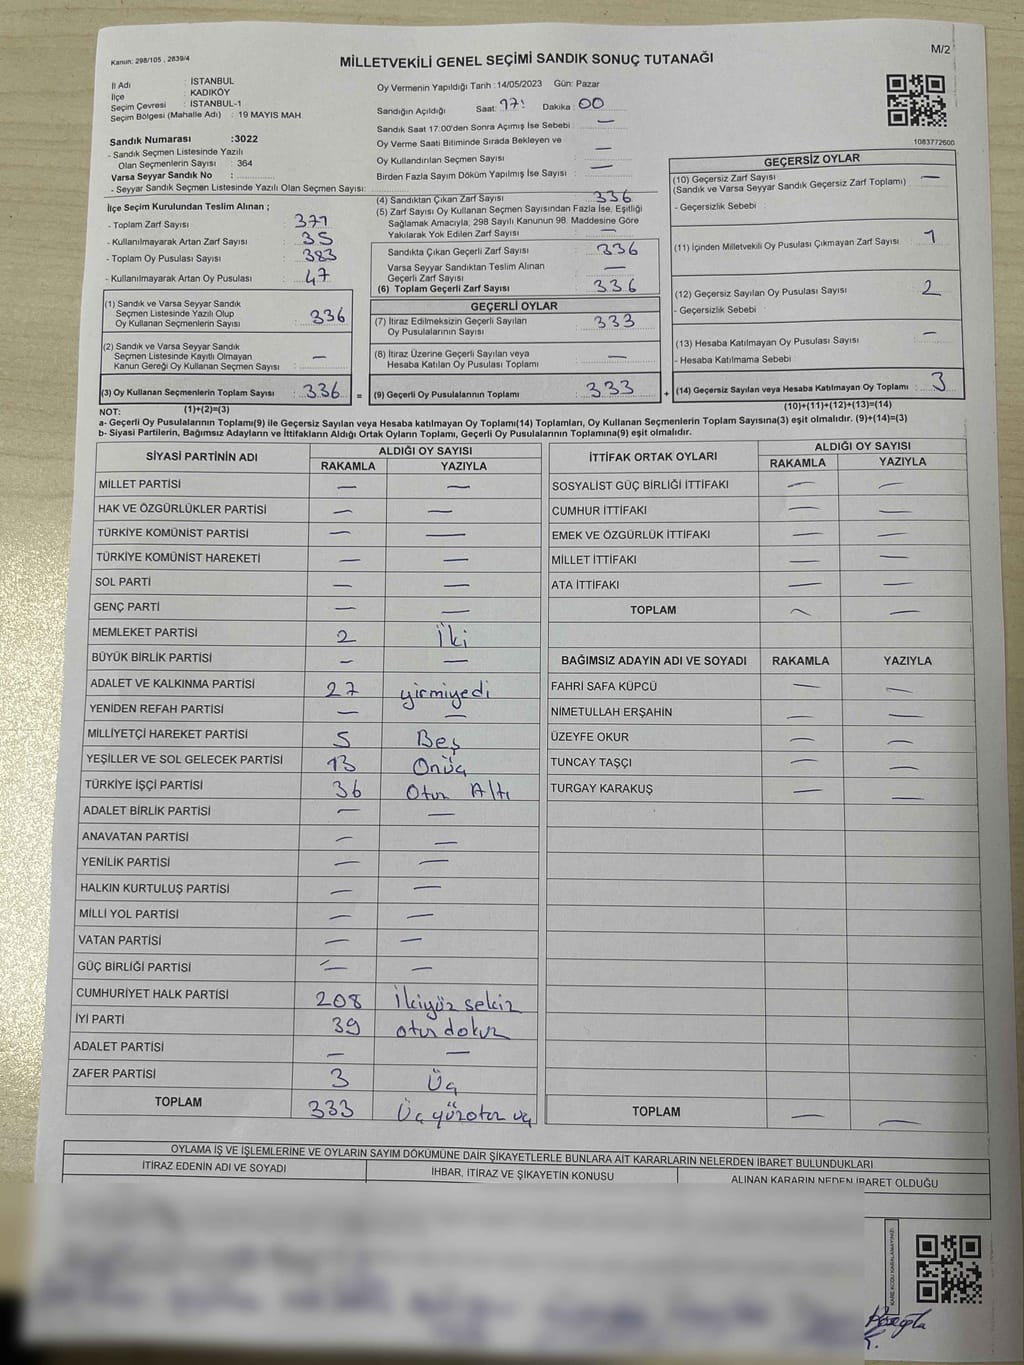 Kanun: 298/105 , 2839/4
MİLLETVEKİLİ GENEL SEÇİMİ SANDIK SONUÇ TUTANAĞI
M/2
İl Adı : İSTANBUL
İlçe : KADIKÖY
Seçim Çevresi : İSTANBUL-1
Seçim Bölgesi (Mahalle Adı) : 19 MAYIS MAH.
Sandık Numarası :3022
- Sandık Seçmen Listesinde Yazılı
Olan Seçmenlerin Sayısı : 364
Varsa Seyyar Sandık No :
- Seyyar Sandık Seçmen Listesinde Yazılı Olan Seçmen Sayısı:
Oy Vermenin Yapıldığı Tarih :14/05/2023 Gün: Pazar
Sandığın Açıldığı Saat: 17: Dakika: 00
Sandık Saat 17:00'den Sonra Açımış İse Sebebi : —
Oy Verme Saati Bitiminde Sırada Bekleyen ve
Oy Kullandırılan Seçmen Sayısı : —
Birden Fazla Sayım Döküm Yapılmış İse Sayısı : —
1083772600
İlçe Seçim Kurulundan Teslim Alınan ;
- Toplam Zarf Sayısı : 371
- Kullanılmayarak Artan Zarf Sayısı : 35
- Toplam Oy Pusulası Sayısı : 383
- Kullanılmayarak Artan Oy Pusulası : 47
(1) Sandık ve Varsa Seyyar Sandık
Seçmen Listesinde Yazılı Olup
Oy Kullanan Seçmenlerin Sayısı : 336
(2) Sandık ve Varsa Seyyar Sandık
Seçmen Listesinde Kayıtlı Olmayan
Kanun Gereği Oy Kullanan Seçmen Sayısı : —
(3) Oy Kullanan Seçmenlerin Toplam Sayısı : 336 =
(1)+(2)=(3)
(4) Sandıktan Çıkan Zarf Sayısı : 336
(5) Zarf Sayısı Oy Kullanan Seçmen Sayısından Fazla İse, Eşitliği
Sağlamak Amacıyla, 298 Sayılı Kanunun 98. Maddesine Göre
Yakılarak Yok Edilen Zarf Sayısı : —
Sandıkta Çıkan Geçerli Zarf Sayısı : 336
Varsa Seyyar Sandıktan Teslim Alınan
Geçerli Zarf Sayısı : —
(6) Toplam Geçerli Zarf Sayısı : 336
GEÇERLİ OYLAR
(7) İtiraz Edilmeksizin Geçerli Sayılan
Oy Pusulalarının Sayısı : 333
(8) İtiraz Üzerine Geçerli Sayılan veya
Hesaba Katılan Oy Pusulası Toplamı : —
(9) Geçerli Oy Pusulalarının Toplamı : 333 +
GEÇERSİZ OYLAR
(10) Geçersiz Zarf Sayısı : —
(Sandık ve Varsa Seyyar Sandık Geçersiz Zarf Toplamı)
- Geçersizlik Sebebi :
(11) İçinden Milletvekili Oy Pusulası Çıkmayan Zarf Sayısı : 1
(12) Geçersiz Sayılan Oy Pusulası Sayısı : 2
- Geçersizlik Sebebi :
(13) Hesaba Katılmayan Oy Pusulası Sayısı : —
- Hesaba Katılmama Sebebi :
(14) Geçersiz Sayılan veya Hesaba Katılmayan Oy Toplamı : 3
(10)+(11)+(12)+(13)=(14)
NOT:
a- Geçerli Oy Pusulalarının Toplamı(9) ile Geçersiz Sayılan veya Hesaba katılmayan Oy Toplamı(14) Toplamları, Oy Kullanan Seçmenlerin Toplam Sayısına(3) eşit olmalıdır. (9)+(14)=(3)
b- Siyasi Partilerin, Bağımsız Adayların ve İttifakların Aldığı Ortak Oyların Toplamı, Geçerli Oy Pusulalarının Toplamına(9) eşit olmalıdır.
SİYASİ PARTİNİN ADI ALDIĞI OY SAYISI
RAKAMLA YAZIYLA
MİLLET PARTİSİ — —
HAK VE ÖZGÜRLÜKLER PARTİSİ — —
TÜRKİYE KOMÜNİST PARTİSİ — —
TÜRKİYE KOMÜNİST HAREKETİ — —
SOL PARTİ — —
GENÇ PARTİ — —
MEMLEKET PARTİSİ 2 İki
BÜYÜK BİRLİK PARTİSİ — —
ADALET VE KALKINMA PARTİSİ 27 yirmiyedi
YENİDEN REFAH PARTİSİ — —
MİLLİYETÇİ HAREKET PARTİSİ 5 Beş
YEŞİLLER VE SOL GELECEK PARTİSİ 13 Onüç
TÜRKİYE İŞÇİ PARTİSİ 36 Otuz Altı
ADALET BİRLİK PARTİSİ — —
ANAVATAN PARTİSİ — —
YENİLİK PARTİSİ — —
HALKIN KURTULUŞ PARTİSİ — —
MİLLİ YOL PARTİSİ — —
VATAN PARTİSİ — —
GÜÇ BİRLİĞİ PARTİSİ — —
CUMHURİYET HALK PARTİSİ 208 İkiyüz sekiz
İYİ PARTİ 39 otuz dokuz
ADALET PARTİSİ — —
ZAFER PARTİSİ 3 Üç
TOPLAM 333 Üç yüz otuz üç
İTTİFAK ORTAK OYLARI ALDIĞI OY SAYISI
RAKAMLA YAZIYLA
SOSYALİST GÜÇ BİRLİĞİ İTTİFAKI — —
CUMHUR İTTİFAKI — —
EMEK VE ÖZGÜRLÜK İTTİFAKI — —
MİLLET İTTİFAKI — —
ATA İTTİFAKI — —
TOPLAM — —
BAĞIMSIZ ADAYIN ADI VE SOYADI RAKAMLA YAZIYLA
FAHRİ SAFA KÜPCÜ — —
NİMETULLAH ERŞAHİN — —
ÜZEYFE OKUR — —
TUNCAY TAŞÇI — —
TURGAY KARAKUŞ — —
TOPLAM — —
OYLAMA İŞ VE İŞLEMLERİNE VE OYLARIN SAYIM DÖKÜMÜNE DAİR ŞİKAYETLERLE BUNLARA AİT KARARLARIN NELERDEN İBARET BULUNDUKLARI
İTİRAZ EDENİN ADI VE SOYADI İHBAR, İTİRAZ VE ŞİKAYETİN KONUSU ALINAN KARARIN NEDEN İBARET OLDUĞU
KARE KODU KARALAMAYINIZ!